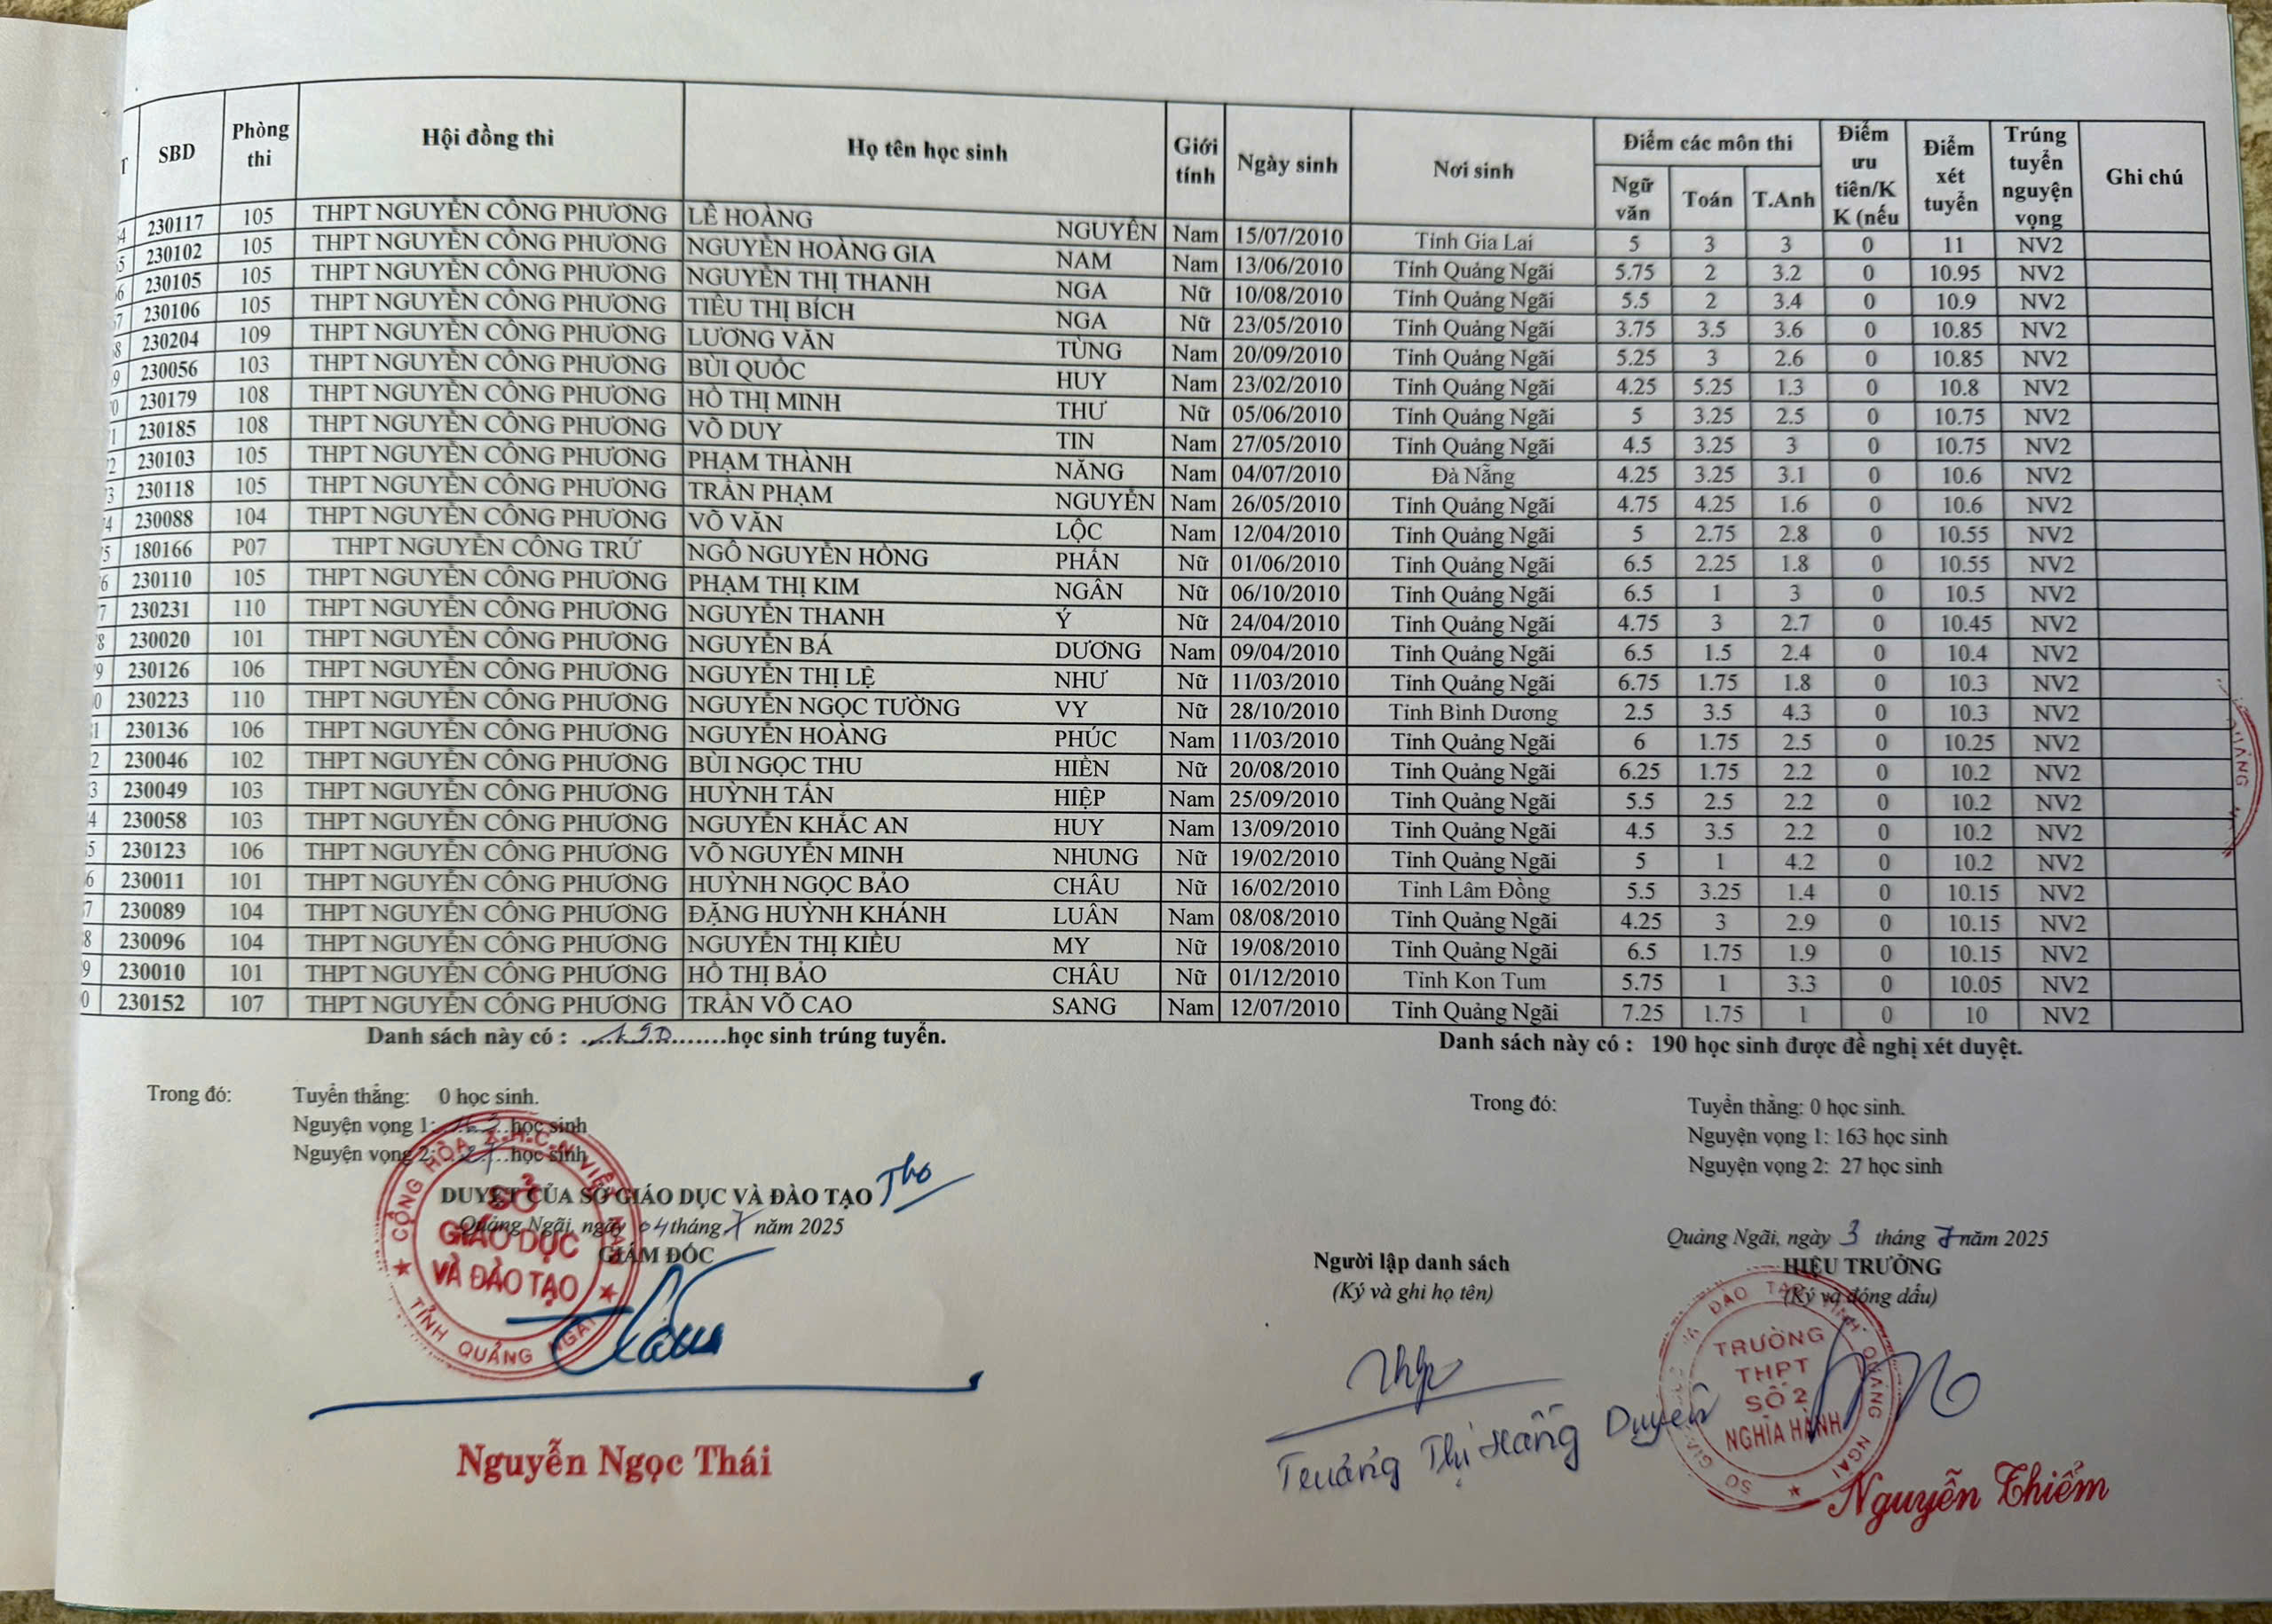 T SBD Phòng thi Hội đồng thi Họ tên học sinh Giới tính Ngày sinh Nơi sinh Điểm các môn thi Điểm ưu tiên/K K (nếu Điểm xét tuyển Trúng tuyển nguyện vọng Ghi chú
Ngữ văn Toán T.Anh
4 230117 105 THPT NGUYỄN CÔNG PHƯƠNG LÊ HOÀNG NGUYÊN Nam 15/07/2010 Tỉnh Gia Lai 5 3 3 0 11 NV2
5 230102 105 THPT NGUYỄN CÔNG PHƯƠNG NGUYỄN HOÀNG GIA NAM Nam 13/06/2010 Tỉnh Quảng Ngãi 5.75 2 3.2 0 10.95 NV2
6 230105 105 THPT NGUYỄN CÔNG PHƯƠNG NGUYỄN THỊ THANH NGA Nữ 10/08/2010 Tỉnh Quảng Ngãi 5.5 2 3.4 0 10.9 NV2
7 230106 105 THPT NGUYỄN CÔNG PHƯƠNG TIÊU THỊ BÍCH NGA Nữ 23/05/2010 Tỉnh Quảng Ngãi 3.75 3.5 3.6 0 10.85 NV2
8 230204 109 THPT NGUYỄN CÔNG PHƯƠNG LƯƠNG VĂN TÙNG Nam 20/09/2010 Tỉnh Quảng Ngãi 5.25 3 2.6 0 10.85 NV2
9 230056 103 THPT NGUYỄN CÔNG PHƯƠNG BÙI QUỐC HUY Nam 23/02/2010 Tỉnh Quảng Ngãi 4.25 5.25 1.3 0 10.8 NV2
0 230179 108 THPT NGUYỄN CÔNG PHƯƠNG HỒ THỊ MINH THƯ Nữ 05/06/2010 Tỉnh Quảng Ngãi 5 3.25 2.5 0 10.75 NV2
1 230185 108 THPT NGUYỄN CÔNG PHƯƠNG VÕ DUY TIN Nam 27/05/2010 Tỉnh Quảng Ngãi 4.5 3.25 3 0 10.75 NV2
2 230103 105 THPT NGUYỄN CÔNG PHƯƠNG PHẠM THÀNH NĂNG Nam 04/07/2010 Đà Nẵng 4.25 3.25 3.1 0 10.6 NV2
3 230118 105 THPT NGUYỄN CÔNG PHƯƠNG TRẦN PHẠM NGUYÊN Nam 26/05/2010 Tỉnh Quảng Ngãi 4.75 4.25 1.6 0 10.6 NV2
4 230088 104 THPT NGUYỄN CÔNG PHƯƠNG VÕ VĂN LỘC Nam 12/04/2010 Tỉnh Quảng Ngãi 5 2.75 2.8 0 10.55 NV2
5 180166 P07 THPT NGUYỄN CÔNG TRỨ NGÔ NGUYỄN HỒNG PHẤN Nữ 01/06/2010 Tỉnh Quảng Ngãi 6.5 2.25 1.8 0 10.55 NV2
6 230110 105 THPT NGUYỄN CÔNG PHƯƠNG PHẠM THỊ KIM NGÂN Nữ 06/10/2010 Tỉnh Quảng Ngãi 6.5 1 3 0 10.5 NV2
7 230231 110 THPT NGUYỄN CÔNG PHƯƠNG NGUYỄN THANH Ý Nữ 24/04/2010 Tỉnh Quảng Ngãi 4.75 3 2.7 0 10.45 NV2
8 230020 101 THPT NGUYỄN CÔNG PHƯƠNG NGUYỄN BÁ DƯƠNG Nam 09/04/2010 Tỉnh Quảng Ngãi 6.5 1.5 2.4 0 10.4 NV2
9 230126 106 THPT NGUYỄN CÔNG PHƯƠNG NGUYỄN THỊ LỆ NHƯ Nữ 11/03/2010 Tỉnh Quảng Ngãi 6.75 1.75 1.8 0 10.3 NV2
0 230223 110 THPT NGUYỄN CÔNG PHƯƠNG NGUYỄN NGỌC TƯỜNG VY Nữ 28/10/2010 Tỉnh Bình Dương 2.5 3.5 4.3 0 10.3 NV2
1 230136 106 THPT NGUYỄN CÔNG PHƯƠNG NGUYỄN HOÀNG PHÚC Nam 11/03/2010 Tỉnh Quảng Ngãi 6 1.75 2.5 0 10.25 NV2
2 230046 102 THPT NGUYỄN CÔNG PHƯƠNG BÙI NGỌC THU HIỀN Nữ 20/08/2010 Tỉnh Quảng Ngãi 6.25 1.75 2.2 0 10.2 NV2
3 230049 103 THPT NGUYỄN CÔNG PHƯƠNG HUỲNH TẤN HIỆP Nam 25/09/2010 Tỉnh Quảng Ngãi 5.5 2.5 2.2 0 10.2 NV2
4 230058 103 THPT NGUYỄN CÔNG PHƯƠNG NGUYỄN KHẮC AN HUY Nam 13/09/2010 Tỉnh Quảng Ngãi 4.5 3.5 2.2 0 10.2 NV2
5 230123 106 THPT NGUYỄN CÔNG PHƯƠNG VÕ NGUYỄN MINH NHUNG Nữ 19/02/2010 Tỉnh Quảng Ngãi 5 1 4.2 0 10.2 NV2
6 230011 101 THPT NGUYỄN CÔNG PHƯƠNG HUỲNH NGỌC BẢO CHÂU Nữ 16/02/2010 Tỉnh Lâm Đồng 5.5 3.25 1.4 0 10.15 NV2
7 230089 104 THPT NGUYỄN CÔNG PHƯƠNG ĐẶNG HUỲNH KHÁNH LUÂN Nam 08/08/2010 Tỉnh Quảng Ngãi 4.25 3 2.9 0 10.15 NV2
8 230096 104 THPT NGUYỄN CÔNG PHƯƠNG NGUYỄN THỊ KIỀU MY Nữ 19/08/2010 Tỉnh Quảng Ngãi 6.5 1.75 1.9 0 10.15 NV2
9 230010 101 THPT NGUYỄN CÔNG PHƯƠNG HỒ THỊ BẢO CHÂU Nữ 01/12/2010 Tỉnh Kon Tum 5.75 1 3.3 0 10.05 NV2
0 230152 107 THPT NGUYỄN CÔNG PHƯƠNG TRẦN VÕ CAO SANG Nam 12/07/2010 Tỉnh Quảng Ngãi 7.25 1.75 1 0 10 NV2
Danh sách này có : ..190.......học sinh trúng tuyển.
Danh sách này có : 190 học sinh được đề nghị xét duyệt.
Trong đó: Tuyển thẳng: 0 học sinh.
Nguyện vọng 1: 163 học sinh
Nguyện vọng 2: 27 học sinh
Trong đó: Tuyển thẳng: 0 học sinh.
Nguyện vọng 1: 163 học sinh
Nguyện vọng 2: 27 học sinh
DUYỆT CỦA SỞ GIÁO DỤC VÀ ĐÀO TẠO
Quảng Ngãi, ngày 04 tháng 7 năm 2025
GIÁM ĐỐC
CỘNG HÒA X.H.C.N VIỆT NAM
SỞ
GIÁO DỤC
VÀ ĐÀO TẠO
TỈNH QUẢNG NGÃI
Nguyễn Ngọc Thái
Người lập danh sách
(Ký và ghi họ tên)
Trương Thị Hồng Duyên
Quảng Ngãi, ngày 3 tháng 7 năm 2025
HIỆU TRƯỞNG
(Ký và đóng dấu)
TRƯỜNG
THPT
SỐ 2
NGHĨA HÀNH
Nguyễn Thiểm